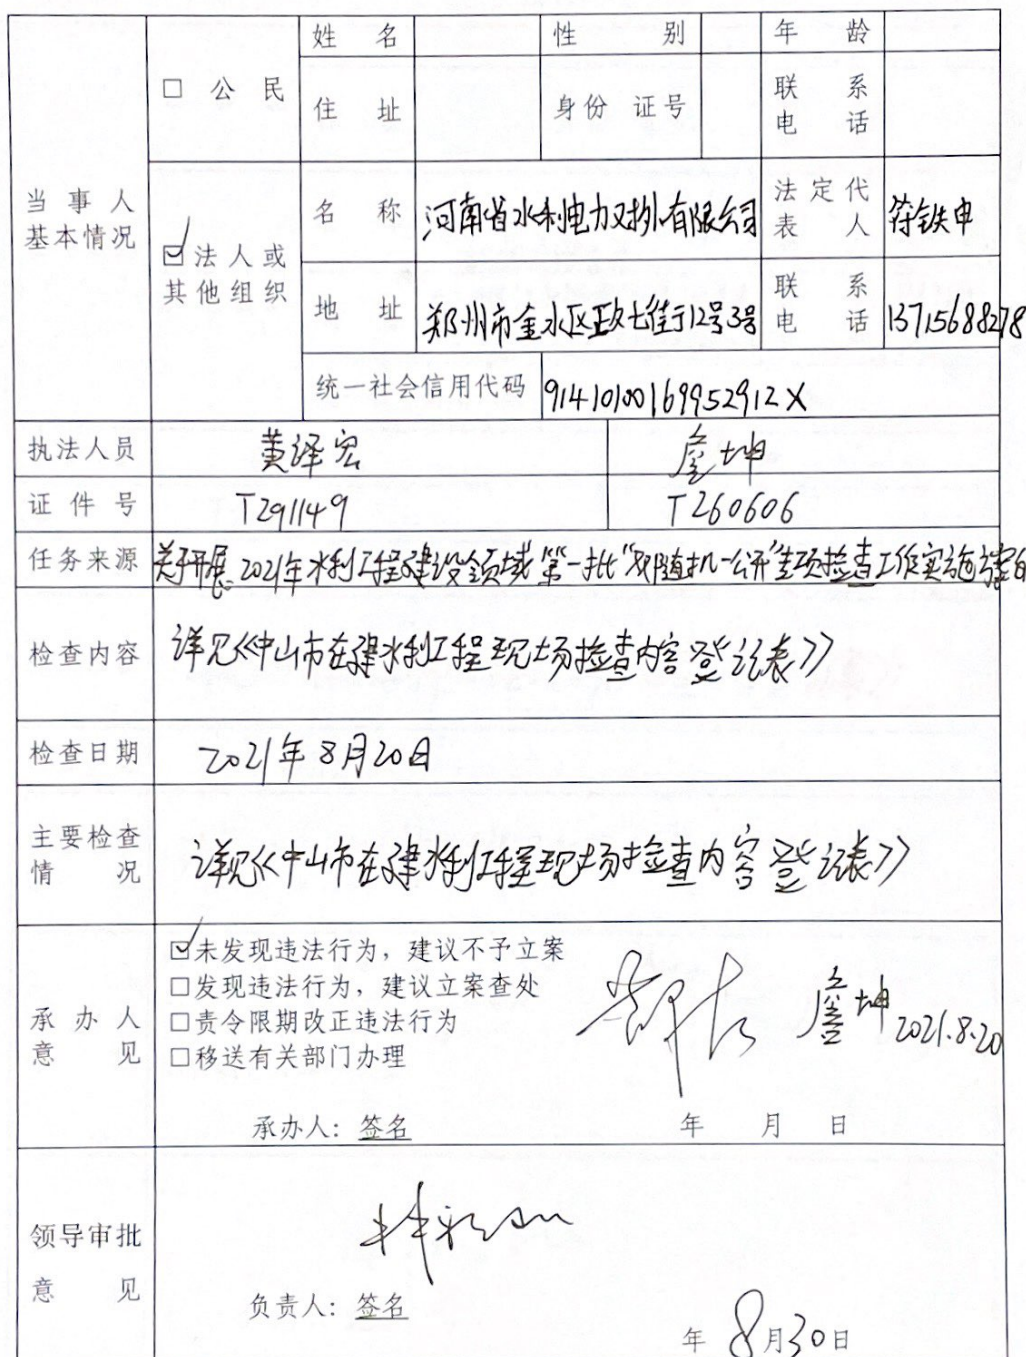 姓名 性别 年龄
□ 公民
住址 身份证号 联系电话
当事人基本情况
名称 河南省水利电力对外有限公司 法定代表人 符铁申
☑法人或其他组织
地址 郑州市金水区政七街12号3号 联系电话 13715688278
统一社会信用代码 91410100169952912X
执法人员 黄泽宏 詹坤
证件号 T291149 T260606
任务来源 关于开展2021年水利工程建设领域第一批“双随机一公开”专项检查工作实施方案的
检查内容 详见《中山市在建水利工程现场检查内容登记表》
检查日期 2021年8月20日
主要检查情况 详见《中山市在建水利工程现场检查内容登记表》
☑未发现违法行为，建议不予立案
□发现违法行为，建议立案查处
承办人意见
□责令限期改正违法行为
詹坤 2021.8.20
□移送有关部门办理
承办人：签名 年 月 日
领导审批意见
负责人：签名
年 8月30日